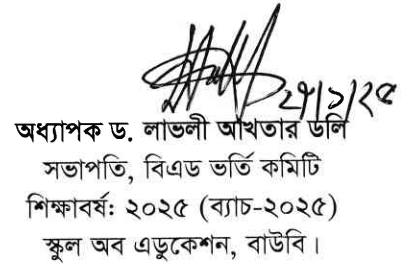 ২৮/১/২৫
অধ্যাপক ড. লাভলী আখতার ডলি
সভাপতি, বিএড ভর্তি কমিটি
শিক্ষাবর্ষ: ২০২৫ (ব্যাচ-২০২৫)
স্কুল অব এডুকেশন, বাউবি।